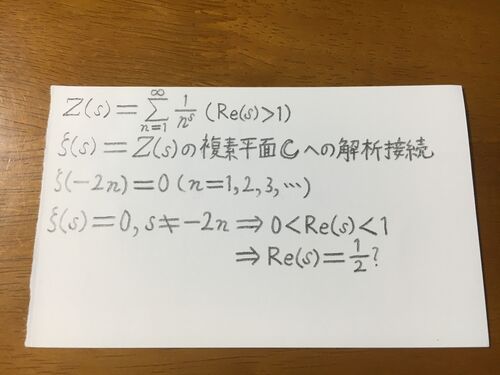 Z(s) = ∑_{n=1}^{∞} 1/n^s (Re(s)>1)
ξ(s) = Z(s)の複素平面ℂへの解析接続
ξ(-2n) = 0 (n=1,2,3,…)
ξ(s) = 0, s≠-2n ⇒ 0<Re(s)<1
⇒ Re(s) = 1/2?